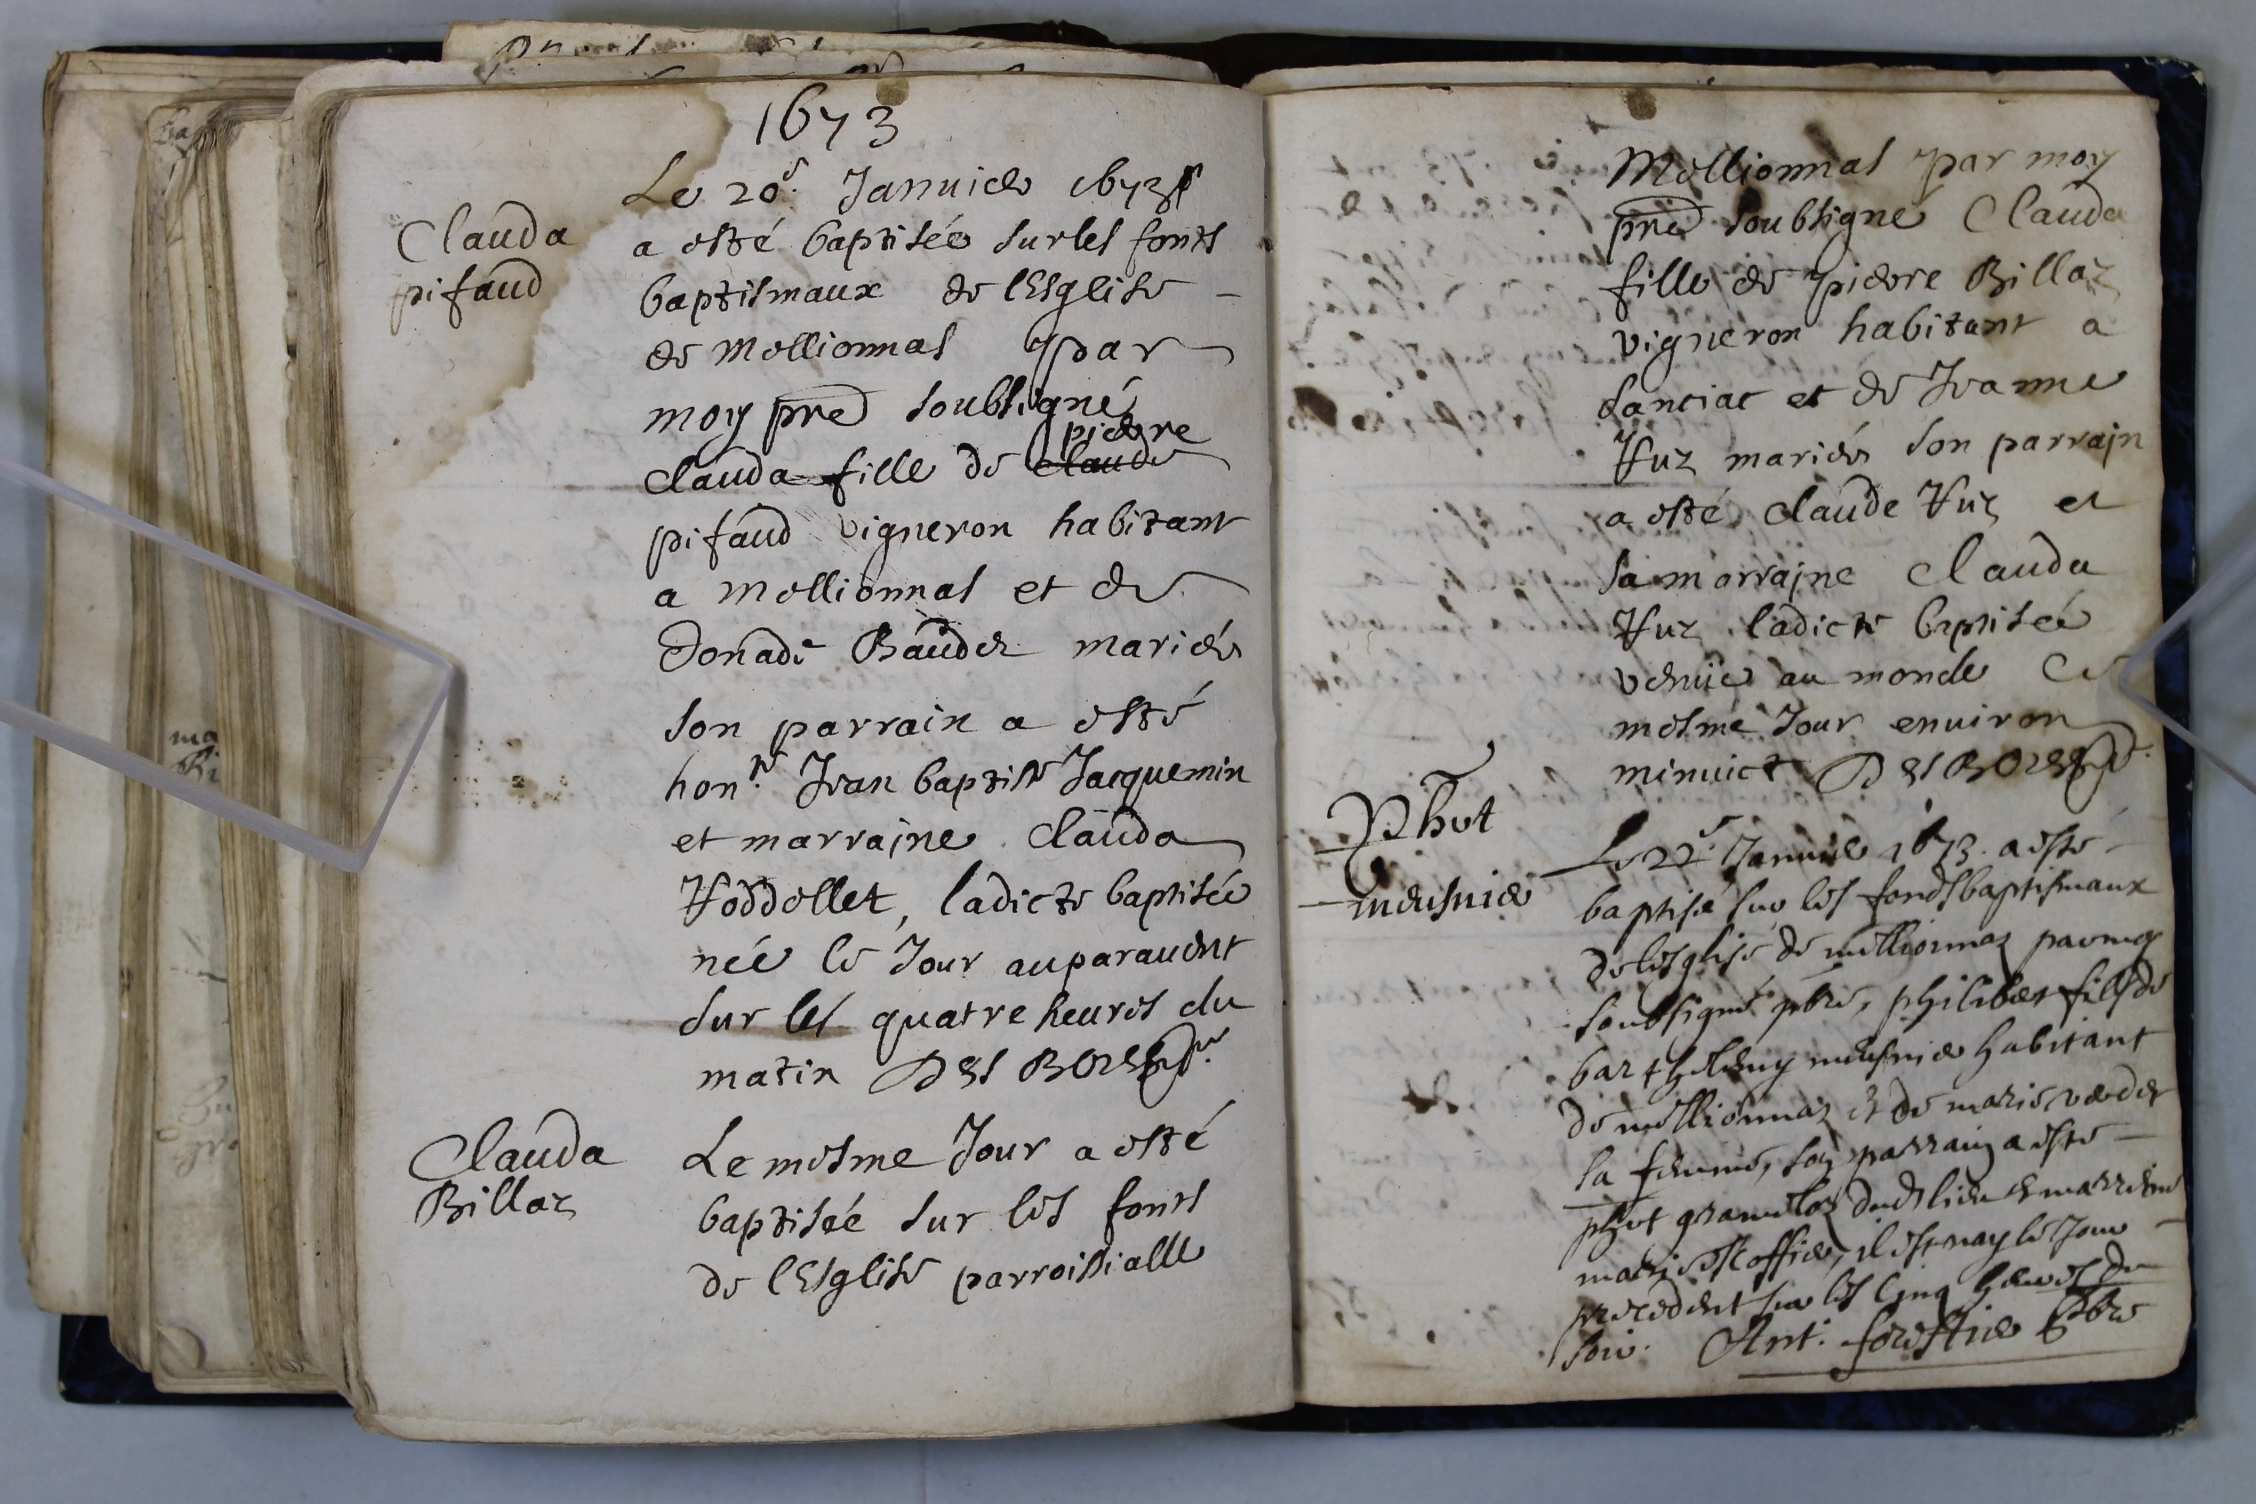 1673
Le 20e. Januier 1673
Clauda
pifaud
a esté baptisée sur les fonts
baptismaux de lEsglise
de Mellionnas par
moy pre soubsigné
pierre
Clauda fille de Claude
pifaud vigneron habitant
a Mellionnas et de
Donade Baudet mariés
son parrain a esté
honte. Jean baptiste Jacquemin
et marrajne Clauda
ladicte baptisée
née le Jour auparauent
sur les quatre heures du
matin
Clauda
Billaz
Le mesme Jour a esté
baptisée sur les fonts
de lEsglise parroissialle
Mellionnas par moy
pre soubsigné Clauda
fille de pierre Billaz
vigneron habitant a
Sanciat et de Jeanne
Vuz mariés son parrajn
a esté Claude Vuz et
sa marrajne Clauda
Vuz ladicte baptisée
venüe au monde Ce
mesme Jour enuiron
minuict
Phbt
meusnier
Le 22e. Januier 1673. a esté
baptisé sur les fonds baptismaux
de lesglise de meillionnaz par moy
soubsigné pbre, philibert fils de
barthelemy meusnier habitant
de meillionnaz et de marie
sa femme, son parrain a esté
phbt dud lieu et marreine
marie il est nay le Jour
precedent sur les Cinq heures du
soir. Ant. forestier pbre